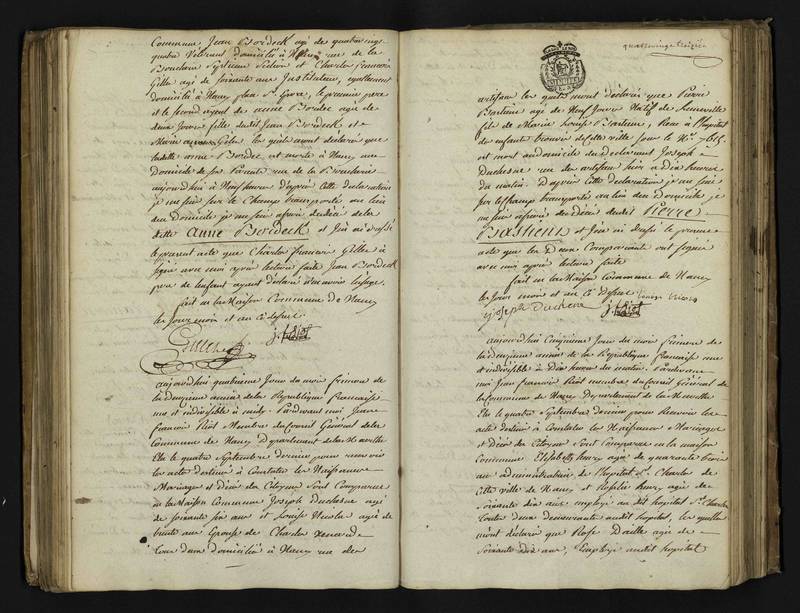 Commune Jean Bordeck agé de quatre vingt
quatre domicilié à Nancy rue de la
Boucherie Septieme Section et Charles francois
Gille agé de soixante ans Instituteur, egallement
domicilié à Nancy place le premier pere
et le second agent de anne Bordec agée de
deux Jours fille dudit Jean Bordeck et
Marie Gilles les quels mont déclarés que
ladite anne Bordec est morte à Nancy au
Domicile de ses Parents rue de la Boucherie
aujourd'hui à Neuf heures d'après cette declaration
je me suis sur le Champ transporté au lieu
du Domicile je me suis assuré du décè de la
ditte Anne Bordeck et J'en ai dressé
le present acte que Charles francois Gilles à
signé avec moi après lecture faite Jean Bordeck
pere de lenfant ayant déclaré
fait en la Maison Commune de Nancy
les Jour mois et an ci dessus.
Gille
aujourd'hui quatrieme Jour du mois frimaire de
la deuxieme année de la Republique francaise
une et indivisible à midy Pardevant moi Jean
francois Membre du Conseil Général de la
Commune de Nancy Departement de la Meurthe
Elu le quatre Septembre dernier pour recevoir
les acte destiné à Constater les Naissances
Mariage et Décès des Citoyens Sont Comparus
en la Maison Commune Joseph Duchesne agé
de soixante six ans et Louise Nicolas agée de
trente ans Epouse de Charles
tous deux domiciliés à Nancy rue des
quatrevingt treizieme
artisans les quels mont déclarés que Pierre
Bastiene agé de Neuf Jours Natif de Luneville
fils de Marie Louise Bastiene, Reçu à l'hopital
des enfants trouvés de cette ville sous le No. 7615.
est mort au domicile du declarant Joseph
Duchesne rue des artisans hier à dix heures
du matin. D'après cette declaration je me suis
sur le champ transporté au lieu du Domicile je
me suis assuré du Décès dudit Pierre
Bastiene et J'en ai Dressé le present
acte que les Deux Comparants ont signés
avec moi après lecture faite
fait en la Maison Commune de Nancy
les Jour mois et an ci dessus
joseph Duchene
aujourd'hui cinquieme Jour du mois frimaire de
la deuxieme année de la Republique francaise une
et indivisible à dix heures du matin. Pardevant
moi Jean francois membre du Conseil Général de
la Commune de Nancy Departement de la Meurthe
Elu le quatre Septembre dernier pour Recevoir les
acte destiné à Constater les Naissances Mariages
et Décès des Citoyens Sont Comparus en la maison
Commune Elisabeth henry agée de quarante trois
ans administratrice de l'hopital St. Charles de
Cette ville de Nancy et Rosalie henry agée de
soixante dix ans employé au dit hopital St. Charles
toutes deux demeurantes audit hopital, les quelles
mont déclarés que Rose agée de
soixante dix ans, Employé audit hopital